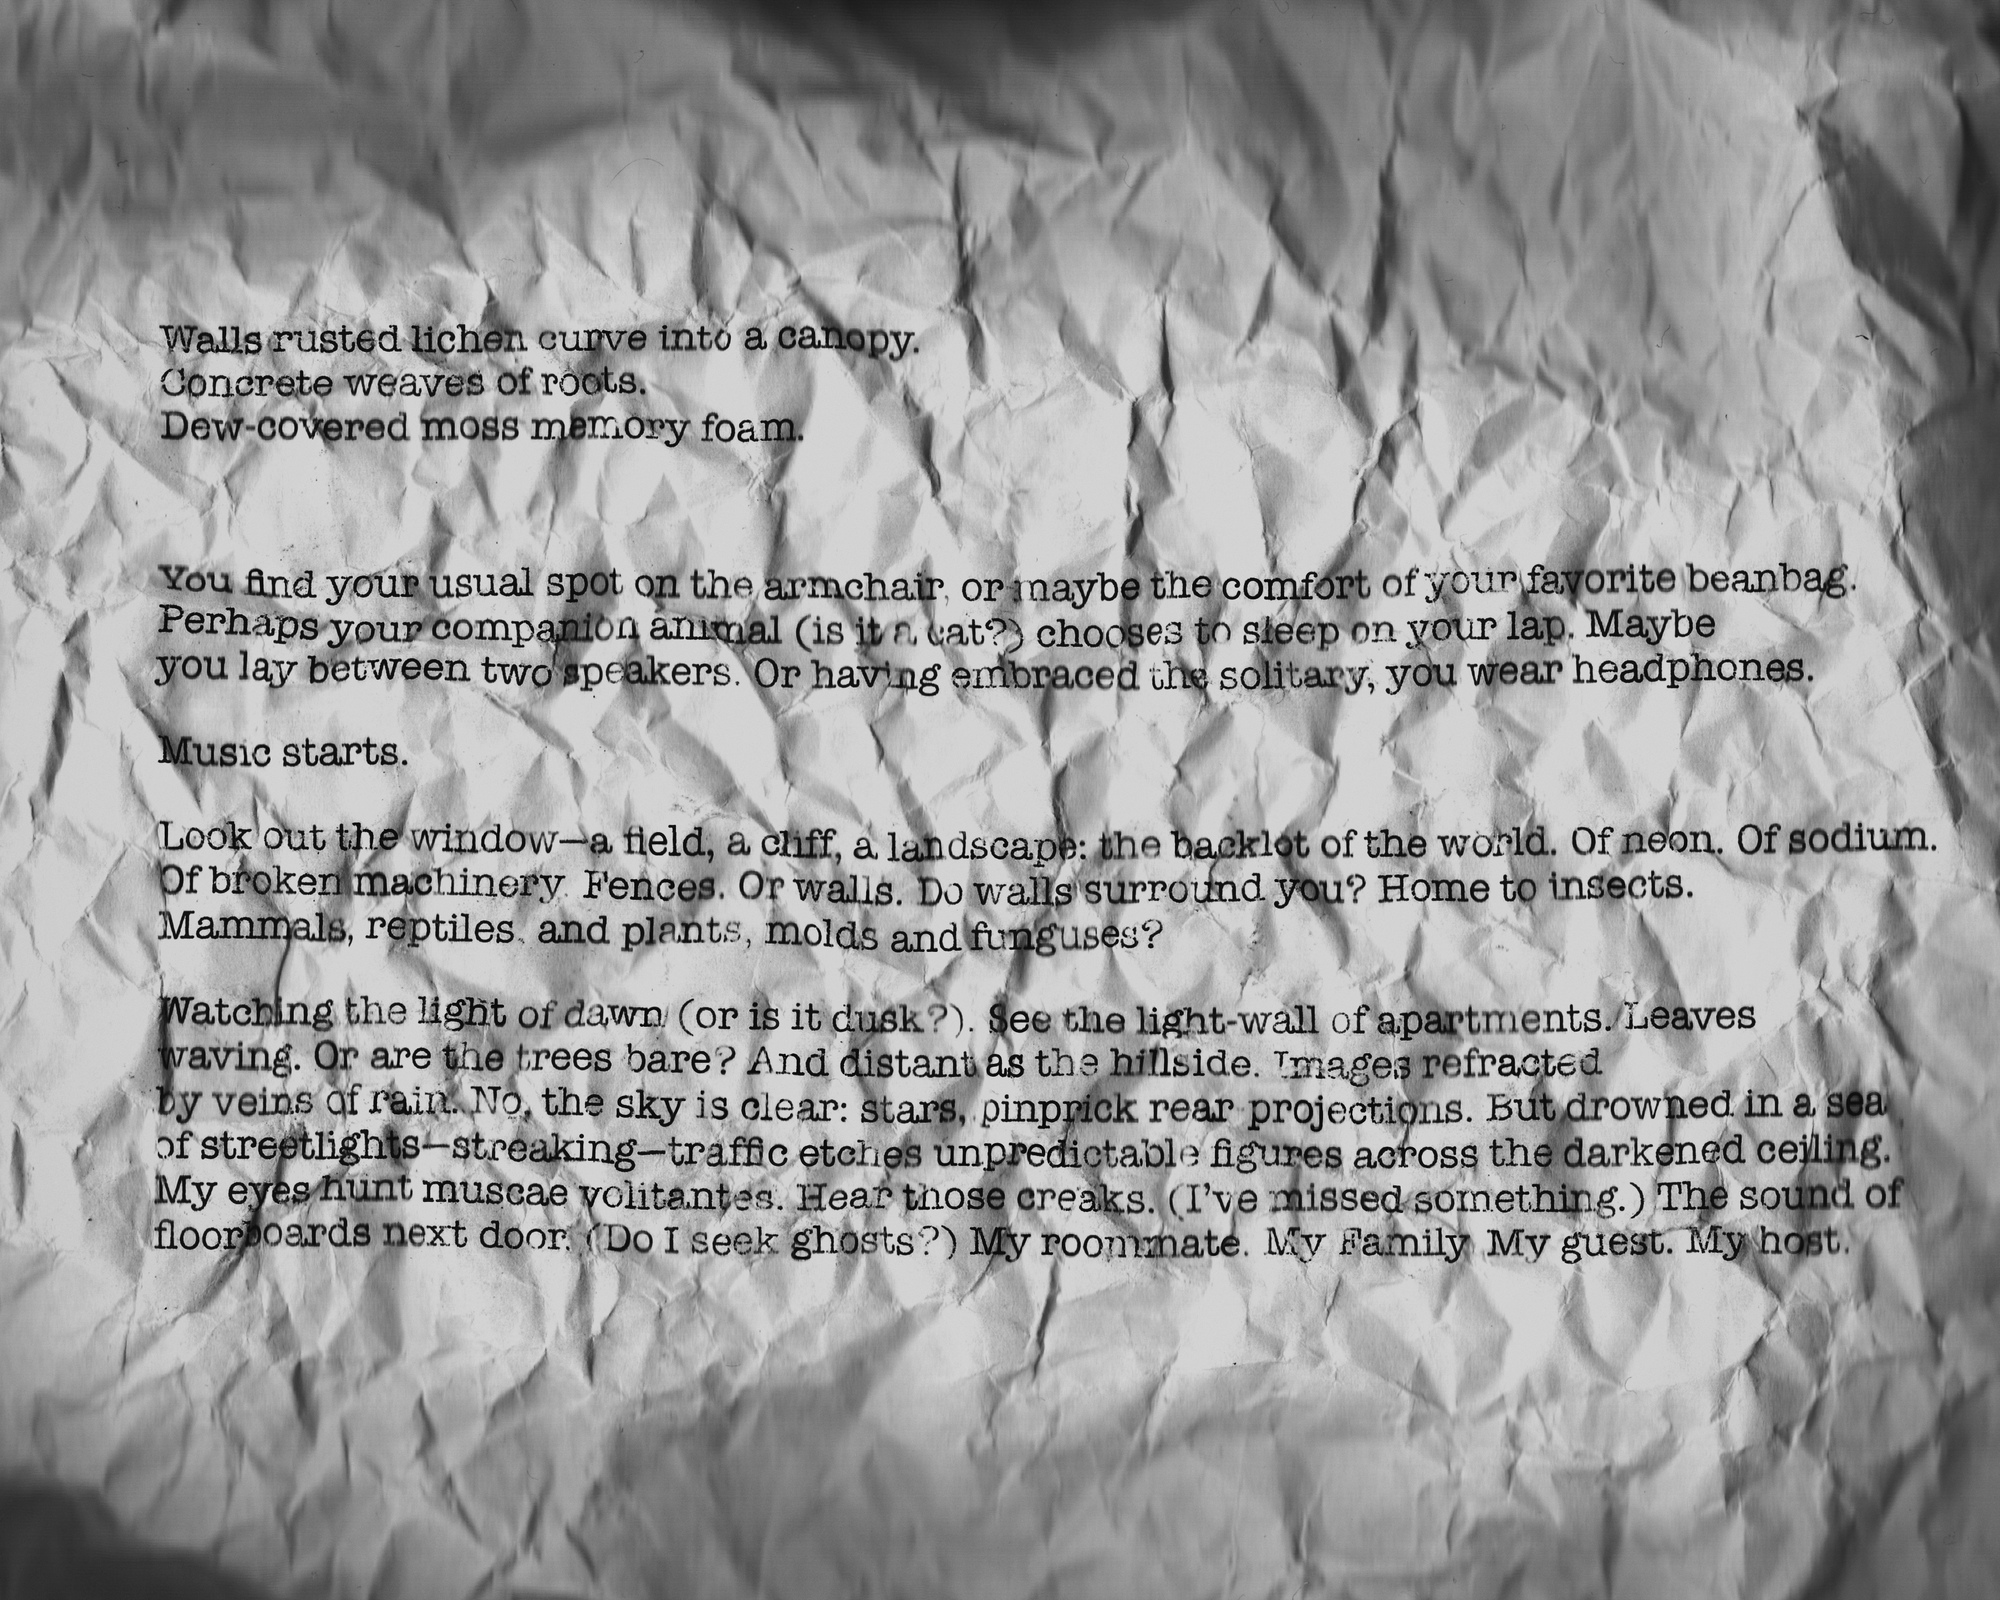 Walls rusted lichen curve into a canopy.
Concrete weaves of roots.
Dew-covered moss memory foam.
You find your usual spot on the armchair, or maybe the comfort of your favorite beanbag.
Perhaps your companion animal (is it a cat?) chooses to sleep on your lap. Maybe
you lay between two speakers. Or having embraced the solitary, you wear headphones.
Music starts.
Look out the window—a field, a cliff, a landscape: the backlot of the world. Of neon. Of sodium.
Of broken machinery. Fences. Or walls. Do walls surround you? Home to insects.
Mammals, reptiles, and plants, molds and funguses?
Watching the light of dawn (or is it dusk?). See the light-wall of apartments. Leaves
waving. Or are the trees bare? And distant as the hillside. Images refracted
by veins of rain. No, the sky is clear: stars, pinprick rear projections. But drowned in a sea
of streetlights—streaking—traffic etches unpredictable figures across the darkened ceiling.
My eyes hunt muscae volitantes. Hear those creaks. (I've missed something.) The sound of
floorboards next door. (Do I seek ghosts?) My roommate. My Family. My guest. My host.